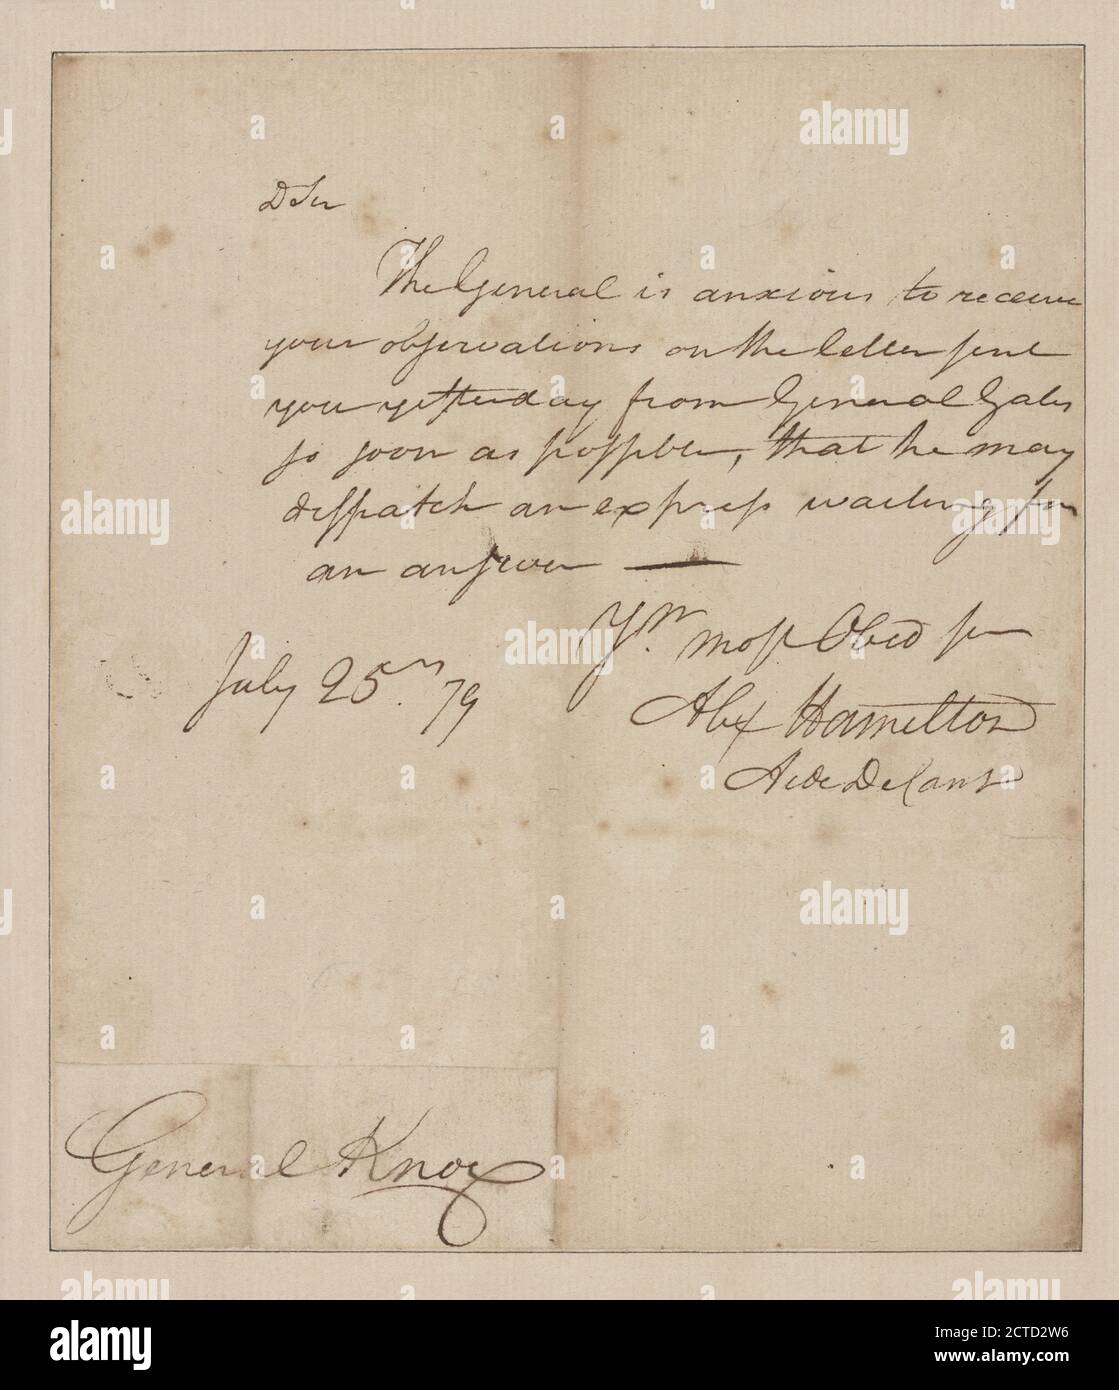 D Sir
The General is anxious to receive
your observations on the letter sent
you yesterday from General Gates
so soon as possible, that he may
dispatch an express waiting for
an answer —
Yr. most Obed ser
July 25th. 79
Alex Hamilton
Aide De Camp
General Knox
alamy
Image ID: 2CTD2W6
www.alamy.com